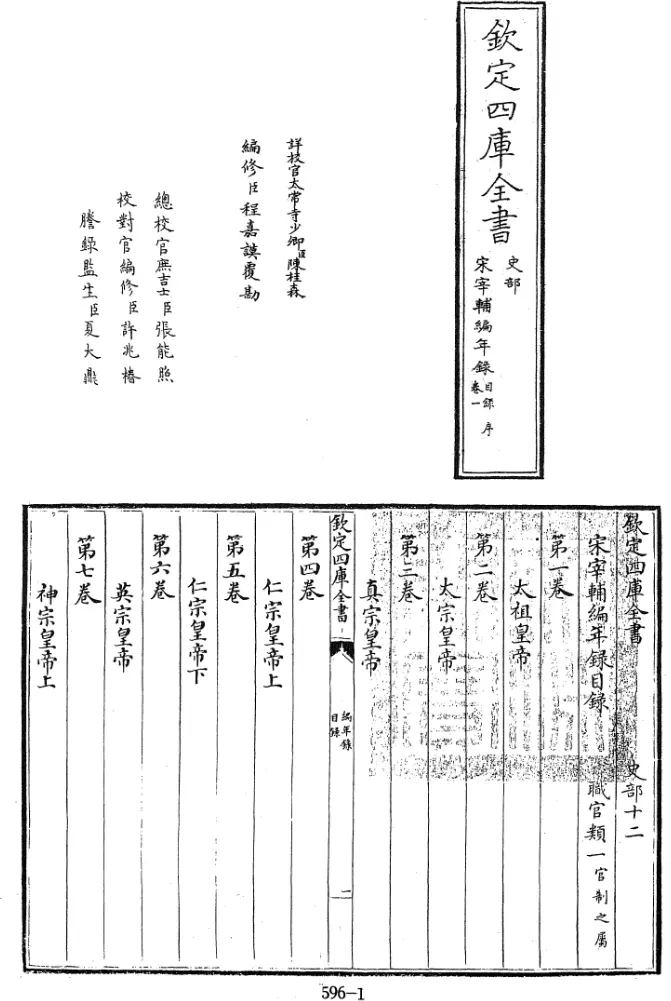 欽定四庫全書
史部
宋宰輔編年録目録 序
卷一
詳校官太常寺少卿臣陳桂森
編修臣程嘉謨覆勘
總校官庶吉士臣張能照
校對官編修臣許兆椿
謄錄監生臣夏大鼎
欽定四庫全書 史部十二
宋宰輔編年録目録 職官類一官制之屬
第一卷
太祖皇帝
第二卷
太宗皇帝
第三卷
真宗皇帝
欽定四庫全書 編年錄目錄 一
第四卷
仁宗皇帝上
第五卷
仁宗皇帝下
第六卷
英宗皇帝
第七卷
神宗皇帝上
596-1